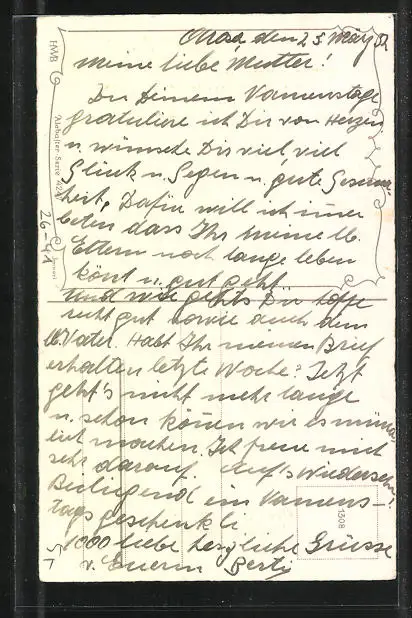 den 25 März 32
meine liebe Mutter!
Zu Deinem Namenstage
gratuliere ich Dir von Herzen
u. wünsche Dir viel, viel
Glück u. Segen u. gute Gesund-
heit, Dafür will ich imer
beten dass Ihr meine lb.
Eltern noch lange leben
könt u. gut geht
Und wie gehts Dir hoffe
recht gut sowie auch dem
lb. Vater. Habt Ihr meinen Brief
erhalten letzte Woche? Jetzt
geht's nicht mehr lange
u. schon könen wir es münd-
lich machen. Ich freue mich
sehr darauf. Auf's Wiedersehn!
Beiligend ein Namens-
tags geschenkli
1000 liebe herzliche Grüsse
v. Euerm Berty
HWB
26-41
1308